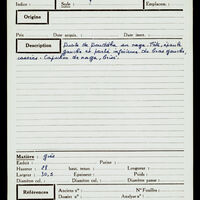 Indice : Salle : Emplacem. :
Origine
Prix : Date acquis. : Date inser. :
Description Buste de Bouddha sur naga. Tête, épaule
gauche et partie inférieure du bras gauche,
cassées. Capuchon de naga, brisé.
Matière grès
Endroit : Patine :
Hauteur : 28 haut. tenon : Longueur :
Largeur : 30,5 Epaisseur : Poids :
Diamètre col. : Diamètre :
Références Anciens nos : No Fouilles :
Dossier no : Analyse no :